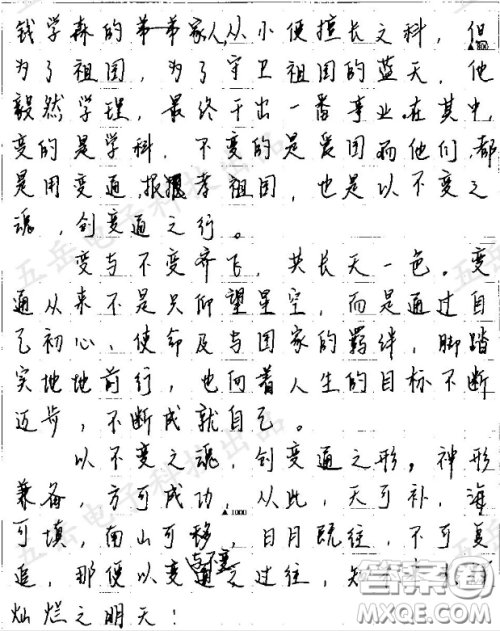 钱学森的弟弟家人,从小便擅长文科,但
为了祖国,为了守卫祖国的蓝天,他
毅然学理,最终干出一番事业。在其中,
变的是学科,不变的是爱国。而他们,都
是用变通,报孝祖国,也是以不变之
魂,创变通之行。
变与不变齐飞,共长天一色。变
通从来不是只仰望星空,而是通过自
己初心、使命及与国家的羁绊,脚踏
实地地前行,也向着人生的目标不断
迈步,不断成就自己。
以不变之魂,创变通之形,神形
兼备,方可成功。从此,天可补,海
▲1000
可填,南山可移,日月既往,不可复
追,那便以变通之过往,
灿烂之明天!
五岳电子科技出品
答案圈
MXQE.COM